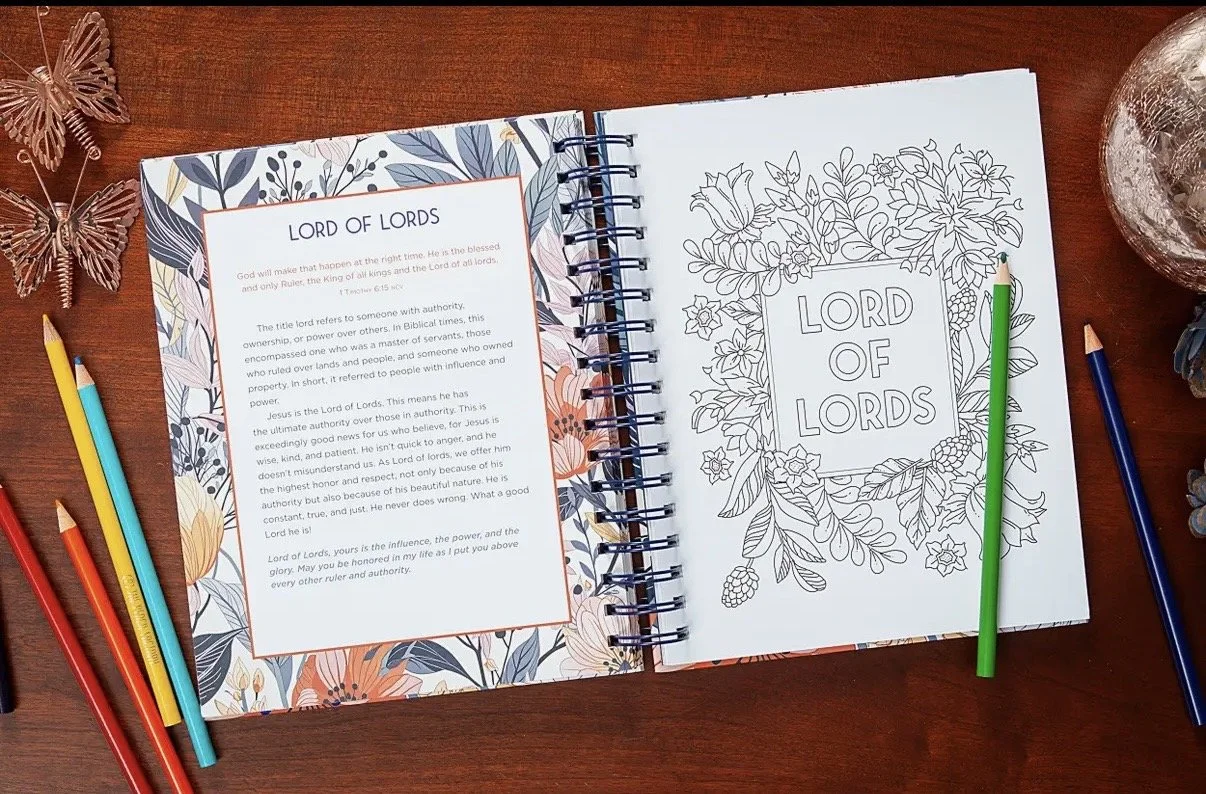 LORD OF LORDS
God will make that happen at the right time. He is the blessed
and only Ruler, the King of all kings and the Lord of all lords.
1 Timothy 6:15 NCV
The title lord refers to someone with authority,
ownership, or power over others. In Biblical times, this
encompassed one who was a master of servants, those
who ruled over lands and people, and someone who owned
property. In short, it referred to people with influence and
power.
Jesus is the Lord of Lords. This means he has
the ultimate authority over those in authority. This is
exceedingly good news for us who believe, for Jesus is
wise, kind, and patient. He isn't quick to anger, and he
doesn't misunderstand us. As Lord of lords, we offer him
the highest honor and respect, not only because of his
authority but also because of his beautiful nature. He is
constant, true, and just. He never does wrong. What a good
Lord he is!
Lord of Lords, yours is the influence, the power, and the
glory. May you be honored in my life as I put you above
every other ruler and authority.
LORD
OF
LORDS